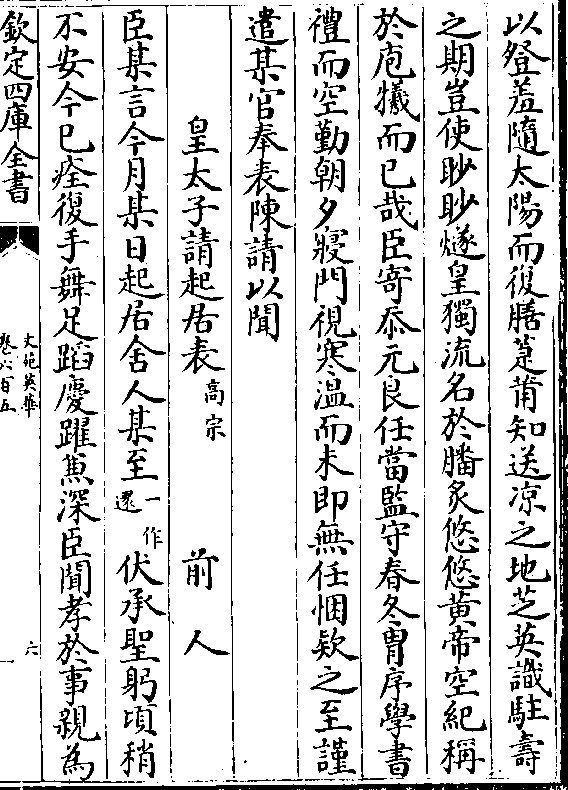 以登羞隨太陽而復膳萐莆知送凉之地芝英識駐壽
之期豈使眇眇燧皇獨流名於膰炙悠悠黄帝空紀稱
於庖犧而已哉臣寄忝元良任當監守春冬胄序學書
禮而空勤朝夕寢門視寒溫而未即無任悃欵之至謹
遣某官奉表陳請以聞
皇太子請起居表高宗 前人
臣某言今月某日起居舍人某至一作還伏承聖躬頃稍
不安今已痊復手舞足蹈慶躍兼深臣聞孝於事親為
欽定四庫全書
文苑英華
卷六百五
六